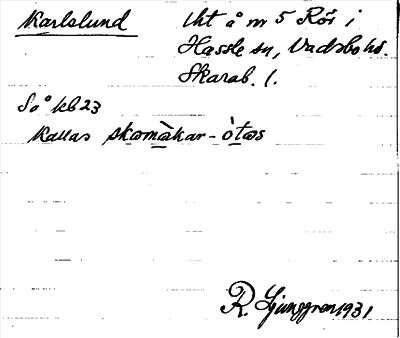 Karlslund
Lht å nr 5 Rör i
Hassle sn, Vadsbo hd.
Skarab. l.
So° kb 23
Kallas skomàkar-òtas
R. Ljunggren 1931